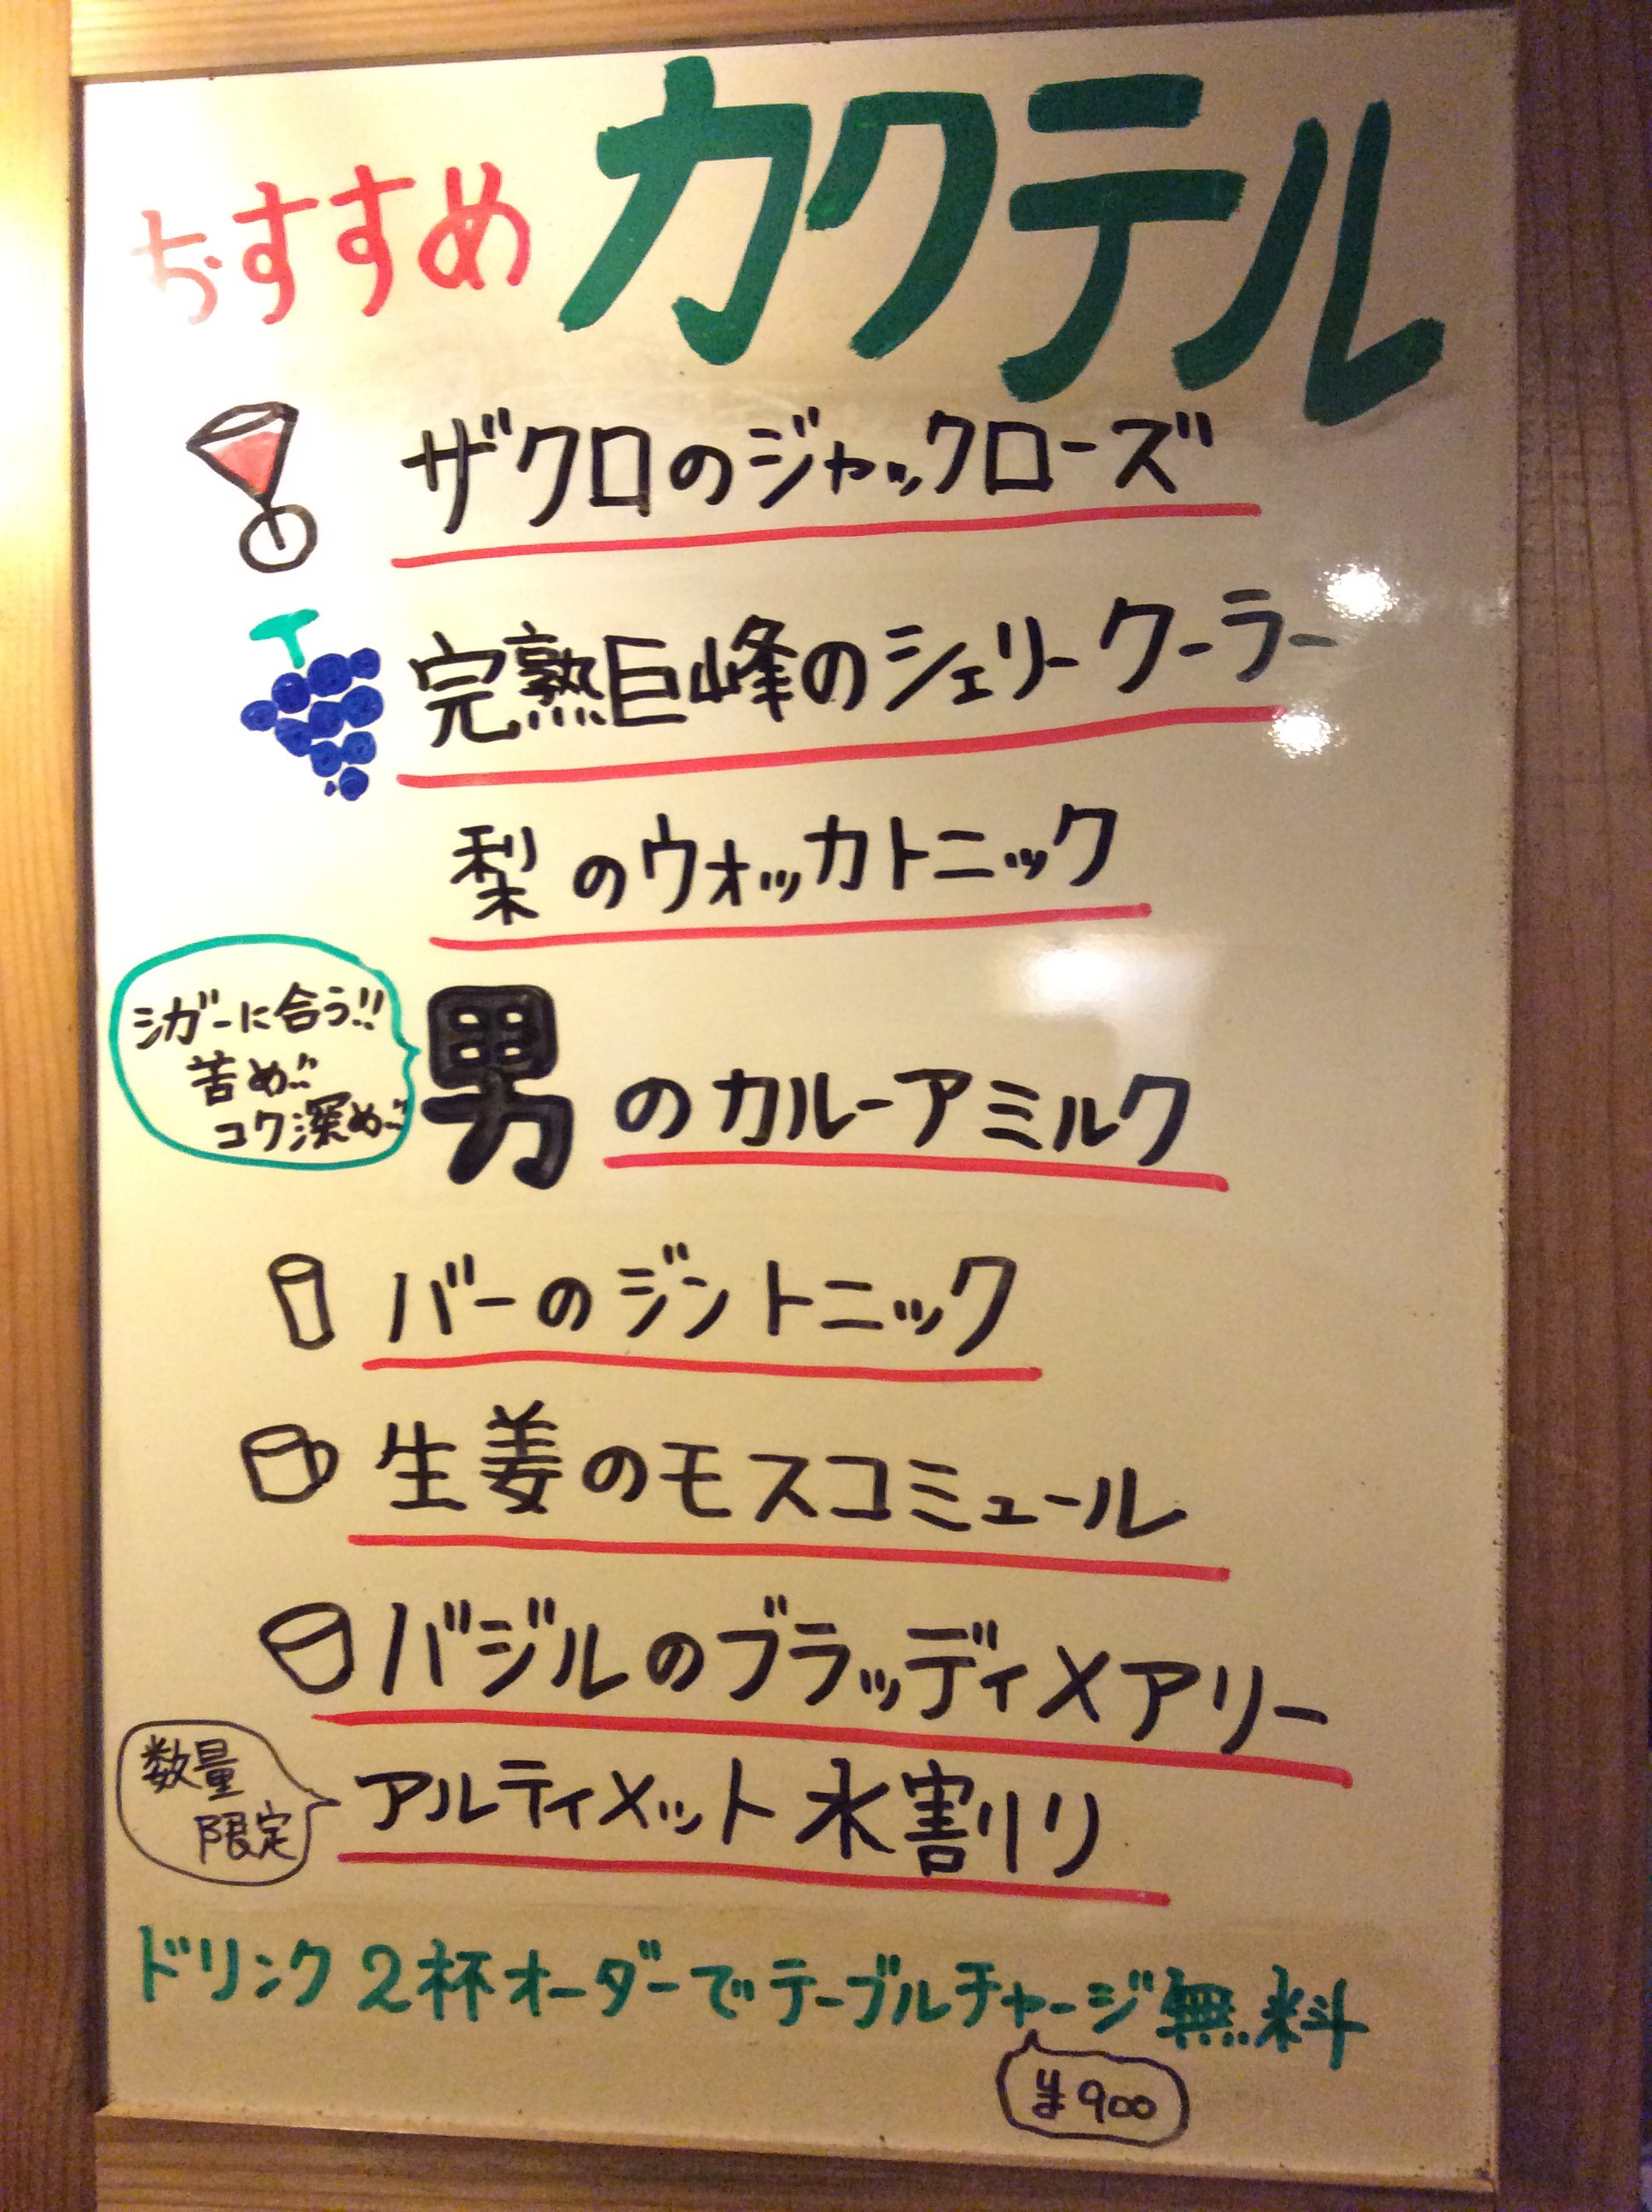 おすすめ カクテル
ザクロのジャックローズ
完熟巨峰のシェリークーラー
梨のウォッカトニック
シガーに合う!!
苦め!!
コク深め!!
男のカルーアミルク
バーのジントニック
生姜のモスコミュール
バジルのブラッディメアリー
数量
限定
アルティメット水割り
ドリンク2杯オーダーでテーブルチャージ無料
¥900